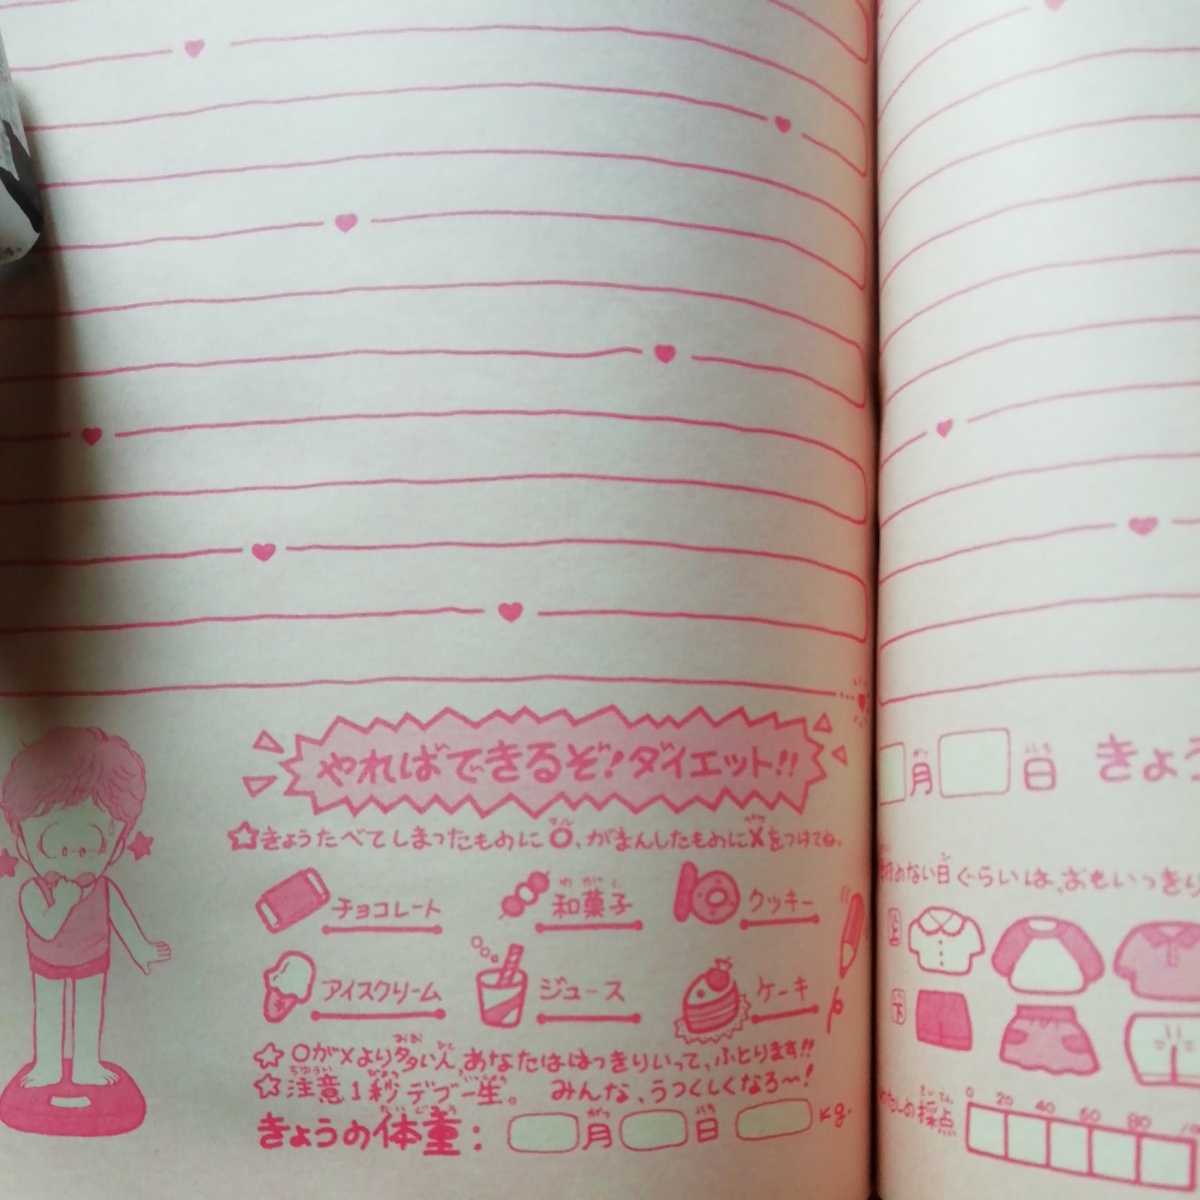 やればできるぞ!ダイエット!!
☆きょうたべてしまったものに○、がまんしたものに×をつけてね。
チョコレート 和菓子 クッキー
アイスクリーム ジュース ケーキ
☆○が×より多い人、あなたははっきりいって、ふとります!!
☆注意1秒デブ一生。 みんな、うつくしくなろ〜!
きょうの体重: 月 日 kg.
月 日 きょう
のない日ぐらいは、おもいっき
上
下
の採点 0 20 40 60 80